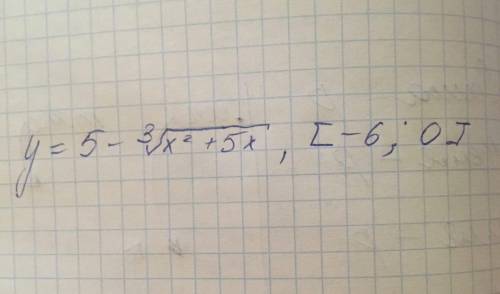 y = 5 - ∛(x² + 5x), [-6; 0]